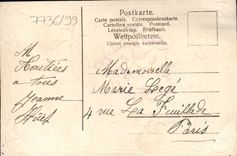 7736/99
Postkarte.
Carte postale. Correspondenzkarte.
Cartolina postale. Postcard.
Levelező-lap. Briefkaart.
Weltpostverein.
Union postale universelle.
M
Amitiés
à tous
Jeanne
Mademoiselle
Marie Legé
4 rue La Feuillade
Paris